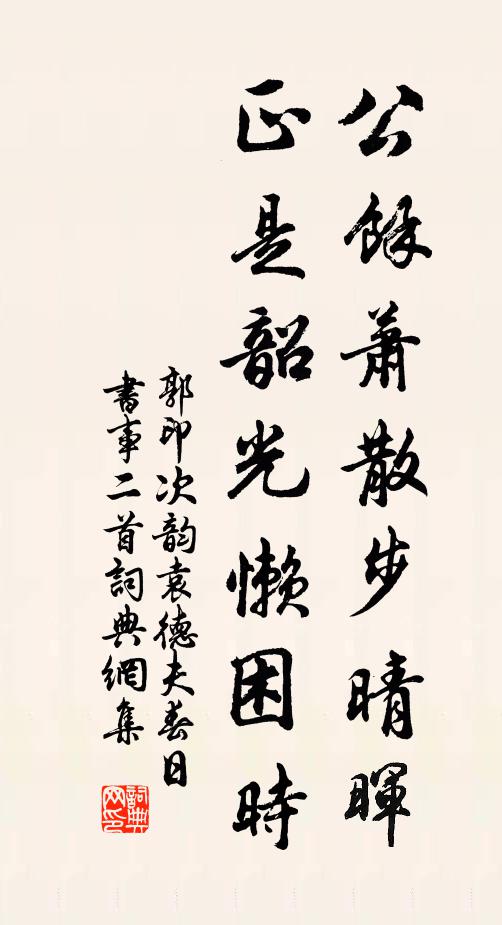 公餘蕭散步晴暉
正是韶光懶困時
郭印次韵袁德夫春日
書事二首詞典網集
詞典网印